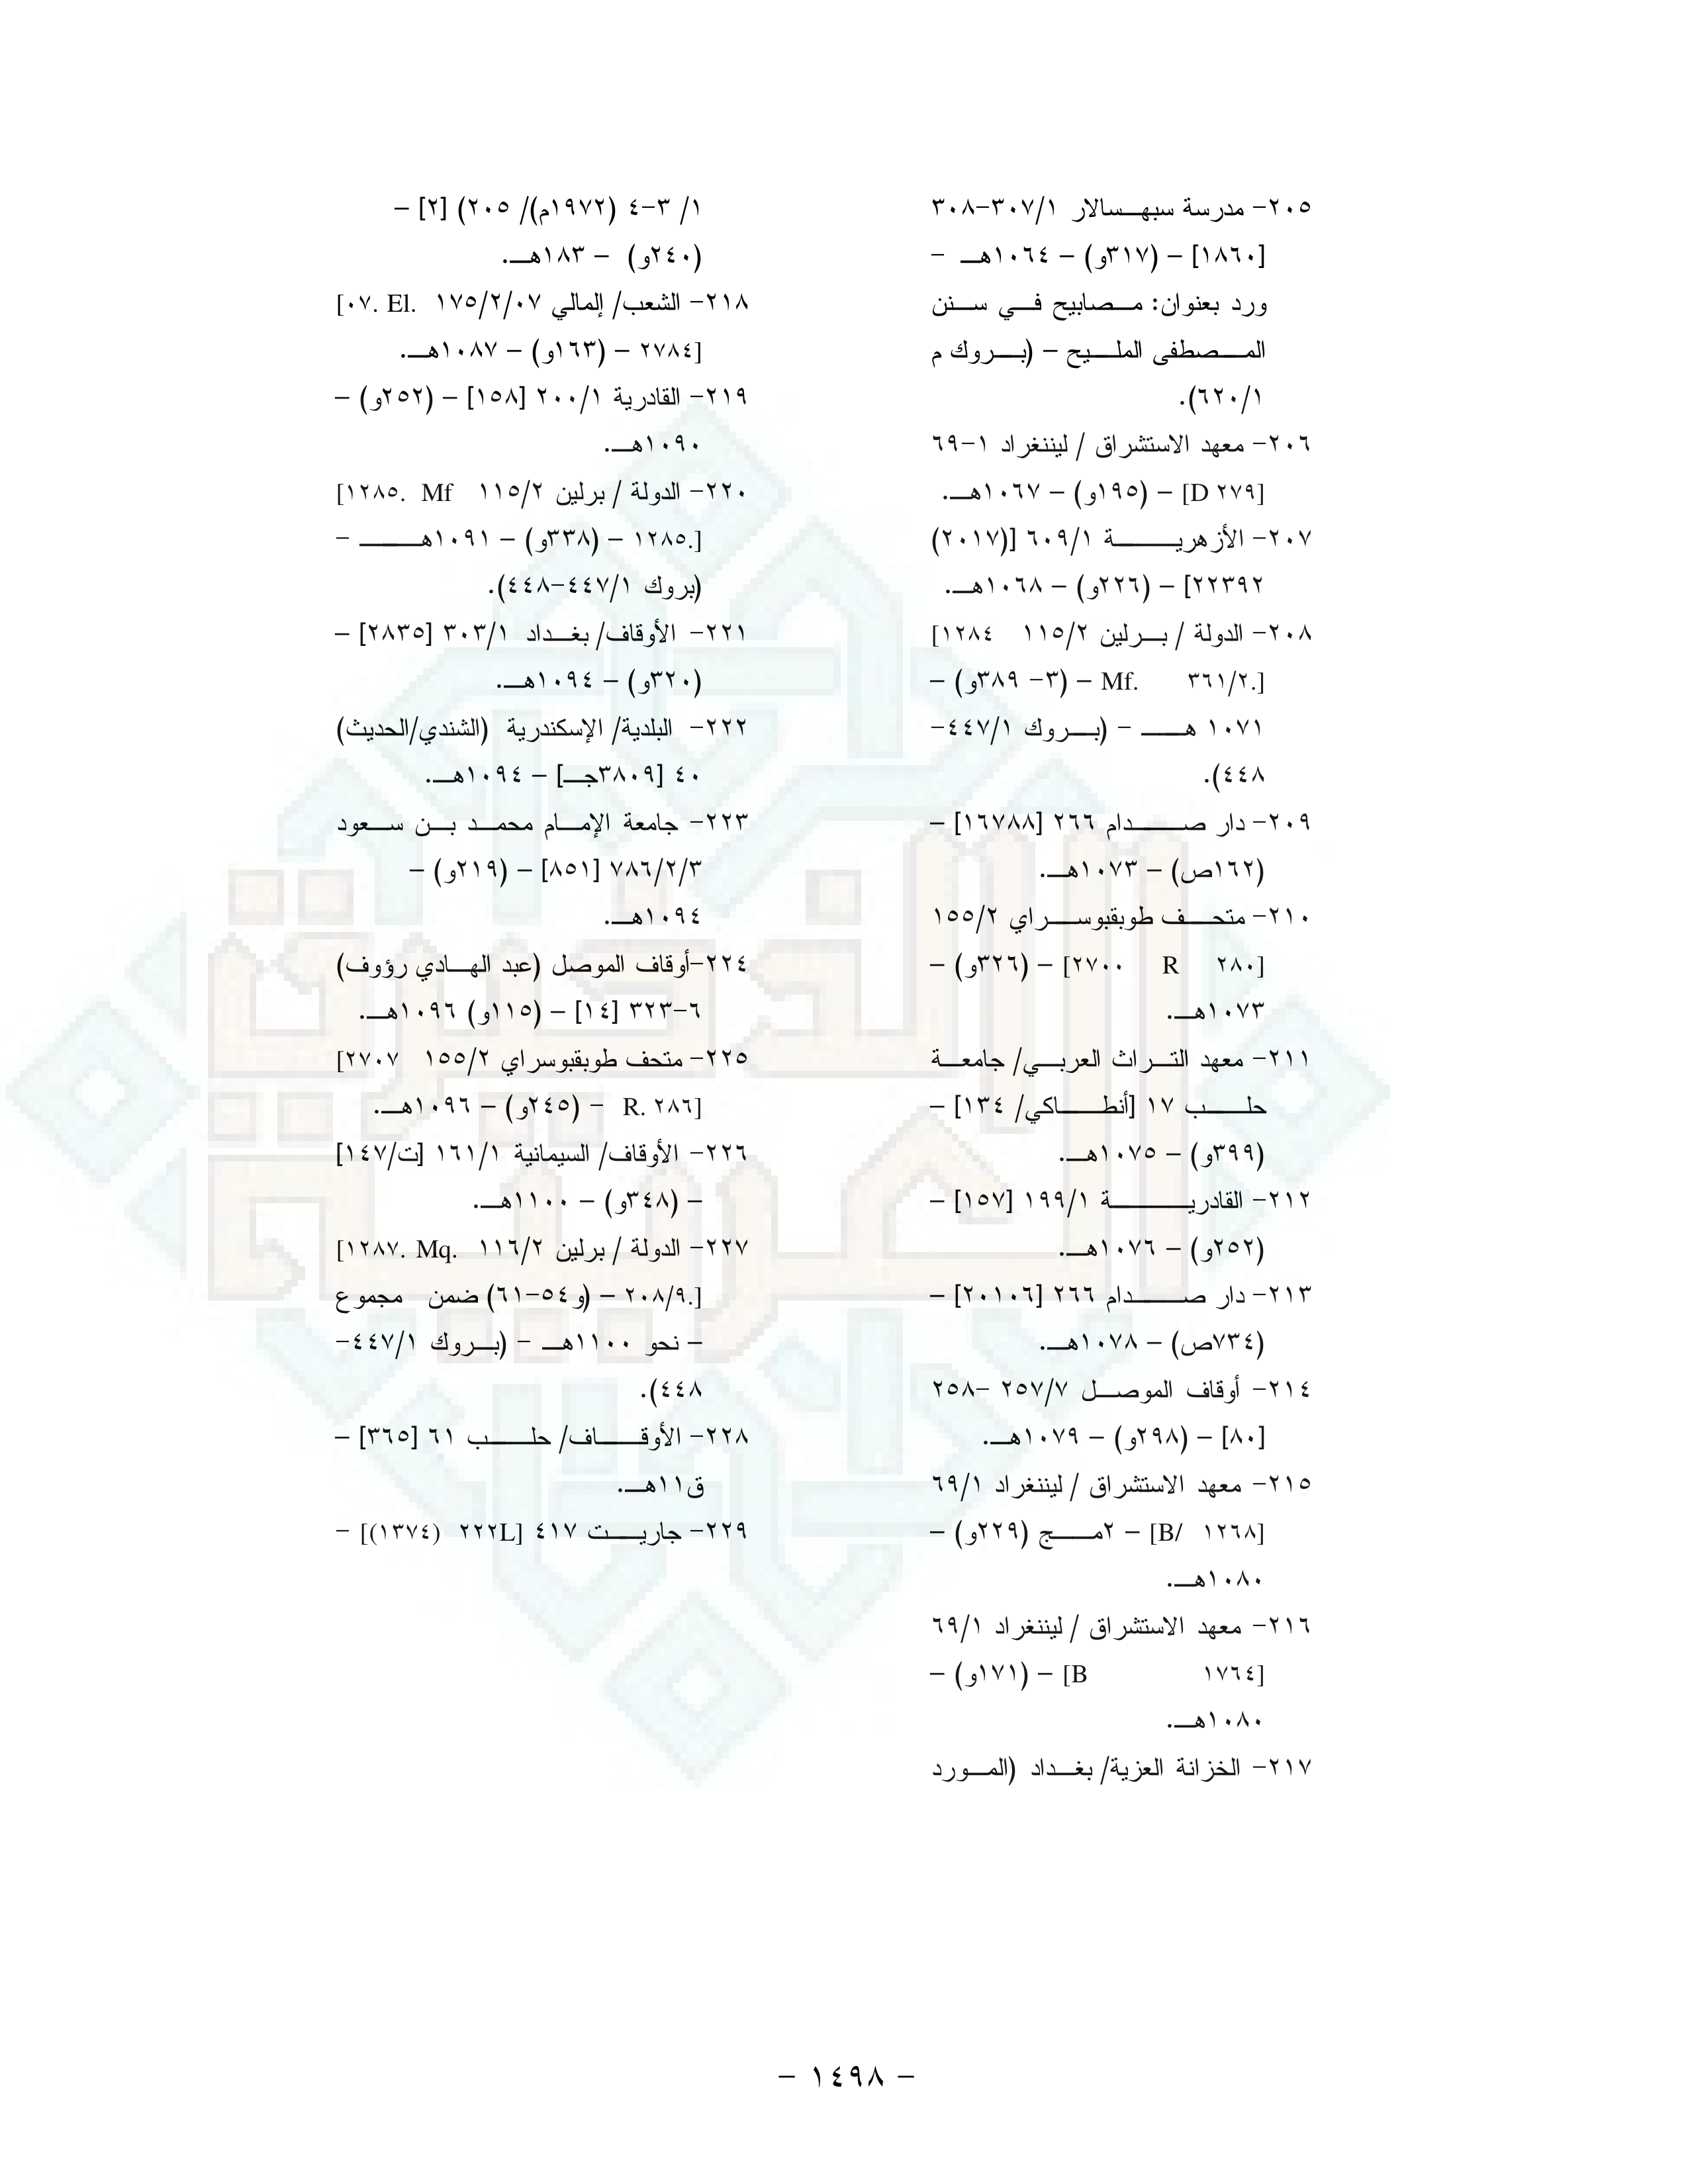 ٢٠٥- مدرسة سبهسالار ٣٠٧/١-٣٠٨
[١٨٦٠] – (٣١٧و) – ١٠٦٤هـ -
ورد بعنوان: مصابيح في سنن
المصطفى المليح – (بروك م
٦٢٠/١).
٢٠٦- معهد الاستشراق / ليننغراد ١-٦٩
[D ٢٧٩] – (١٩٥و) – ١٠٦٧هـ.
٢٠٧- الأزهرية ٦٠٩/١ [(٢٠١٧)
٢٢٣٩٢] – (٢٢٦و) – ١٠٦٨هـ.
٢٠٨- الدولة / برلين ١١٥/٢ ١٢٨٤]
[.٣٦١/٢ Mf. – (٣- ٣٨٩و) –
١٠٧١ هـ - (بروك ٤٤٧/١-
٤٤٨).
٢٠٩- دار صدام ٢٦٦ [١٦٧٨٨] –
(١٦٢ص) – ١٠٧٣هـ.
٢١٠- متحف طوبقبوسراي ١٥٥/٢
[٢٨٠ R ٢٧٠٠] – (٣٢٦و) –
١٠٧٣هـ.
٢١١- معهد التراث العربي/ جامعة
حلب ١٧ [أنطاكي/ ١٣٤] –
(٣٩٩و) – ١٠٧٥هـ.
٢١٢- القادرية ١٩٩/١ [١٥٧] –
(٢٥٢و) – ١٠٧٦هـ.
٢١٣- دار صدام ٢٦٦ [٢٠١٠٦] –
(٧٣٤ص) – ١٠٧٨هـ.
٢١٤- أوقاف الموصل ٢٥٧/٧ -٢٥٨
[٨٠] – (٢٩٨و) – ١٠٧٩هـ.
٢١٥- معهد الاستشراق / ليننغراد ٦٩/١
[١٢٦٨ B/] – ٢مج (٢٢٩و) –
١٠٨٠هـ.
٢١٦- معهد الاستشراق / ليننغراد ٦٩/١
[١٧٦٤ B] – (١٧١و) –
١٠٨٠هـ.
٢١٧- الخزانة العزية/ بغداد (المورد
١/ ٣-٤ (١٩٧٢م)/ ٢٠٥) [٢] –
(٢٤٠و) – ١٨٣هـ.
٢١٨- الشعب/ إلمالي ١٧٥/٢/٠٧ .٠٧. El]
[٢٧٨٤ – (١٦٣و) – ١٠٨٧هـ.
٢١٩- القادرية ٢٠٠/١ [١٥٨] – (٢٥٢و) –
١٠٩٠هـ.
٢٢٠- الدولة / برلين ١١٥/٢ ١٢٨٥. Mf]
[.١٢٨٥ – (٣٣٨و) – ١٠٩١هـ -
(بروك ٤٤٧/١-٤٤٨).
٢٢١- الأوقاف/ بغداد ٣٠٣/١ [٢٨٣٥] –
(٣٢٠و) – ١٠٩٤هـ.
٢٢٢- البلدية/ الإسكندرية (الشندي/الحديث)
٤٠ [٣٨٠٩جـ] – ١٠٩٤هـ.
٢٢٣- جامعة الإمام محمد بن سعود
٧٨٦/٢/٣ [٨٥١] – (٢١٩و) –
١٠٩٤هـ.
٢٢٤-أوقاف الموصل (عبد الهادي رؤوف)
٦-٣٢٣ [١٤] – (١١٥و) ١٠٩٦هـ.
٢٢٥- متحف طوبقبوسراي ١٥٥/٢ ٢٧٠٧]
[٢٨٦ .R – (٢٤٥و) – ١٠٩٦هـ.
٢٢٦- الأوقاف/ السيمانية ١٦١/١ [ت/١٤٧]
– (٣٤٨و) – ١١٠٠هـ.
٢٢٧- الدولة / برلين ١١٦/٢ .١٢٨٧. Mq]
[.٢٠٨/٩ – (و٥٤-٦١) ضمن مجموع
– نحو ١١٠٠هـ - (بروك ٤٤٧/١-
٤٤٨).
٢٢٨- الأوقاف/ حلب ٦١ [٣٦٥] –
ق١١هـ.
٢٢٩- جاريت ٤١٧ [٢٢٢L (١٣٧٤)] -
- ١٤٩٨ -